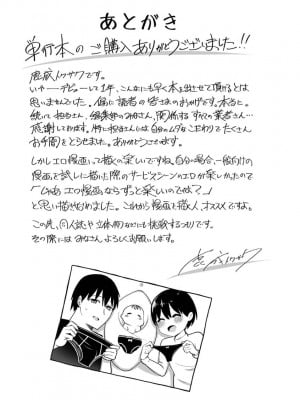 あとがき
単行本のご購入ありがとうございました!!
です。
いやーデビューして1年、こんなにも早く本を出させて頂けるとは
思いませんでした。偏に読者の皆さまのおかげです。本当に。
続いて担当さん、編集部のみなさん、関係するすべての業者さん…
感謝しております。特に担当さんには自分のムダなこだわりでたくさん
お手間をとらせました。ありがとうございます。
しかしエロ漫画って描くの楽しいですね。自分の場合、一般向けの
漫画で試しに描いた際のサービスシーンのエロが楽しかったので
「じゃあエロ漫画ならずっと楽しいのでは?」
と思い描き始めました。これから漫画を描く人、オススメですよ。
この先、同人誌や立体的なことにも挑戦するつもりです。
その際にはみなさん、よろしくお願いします。